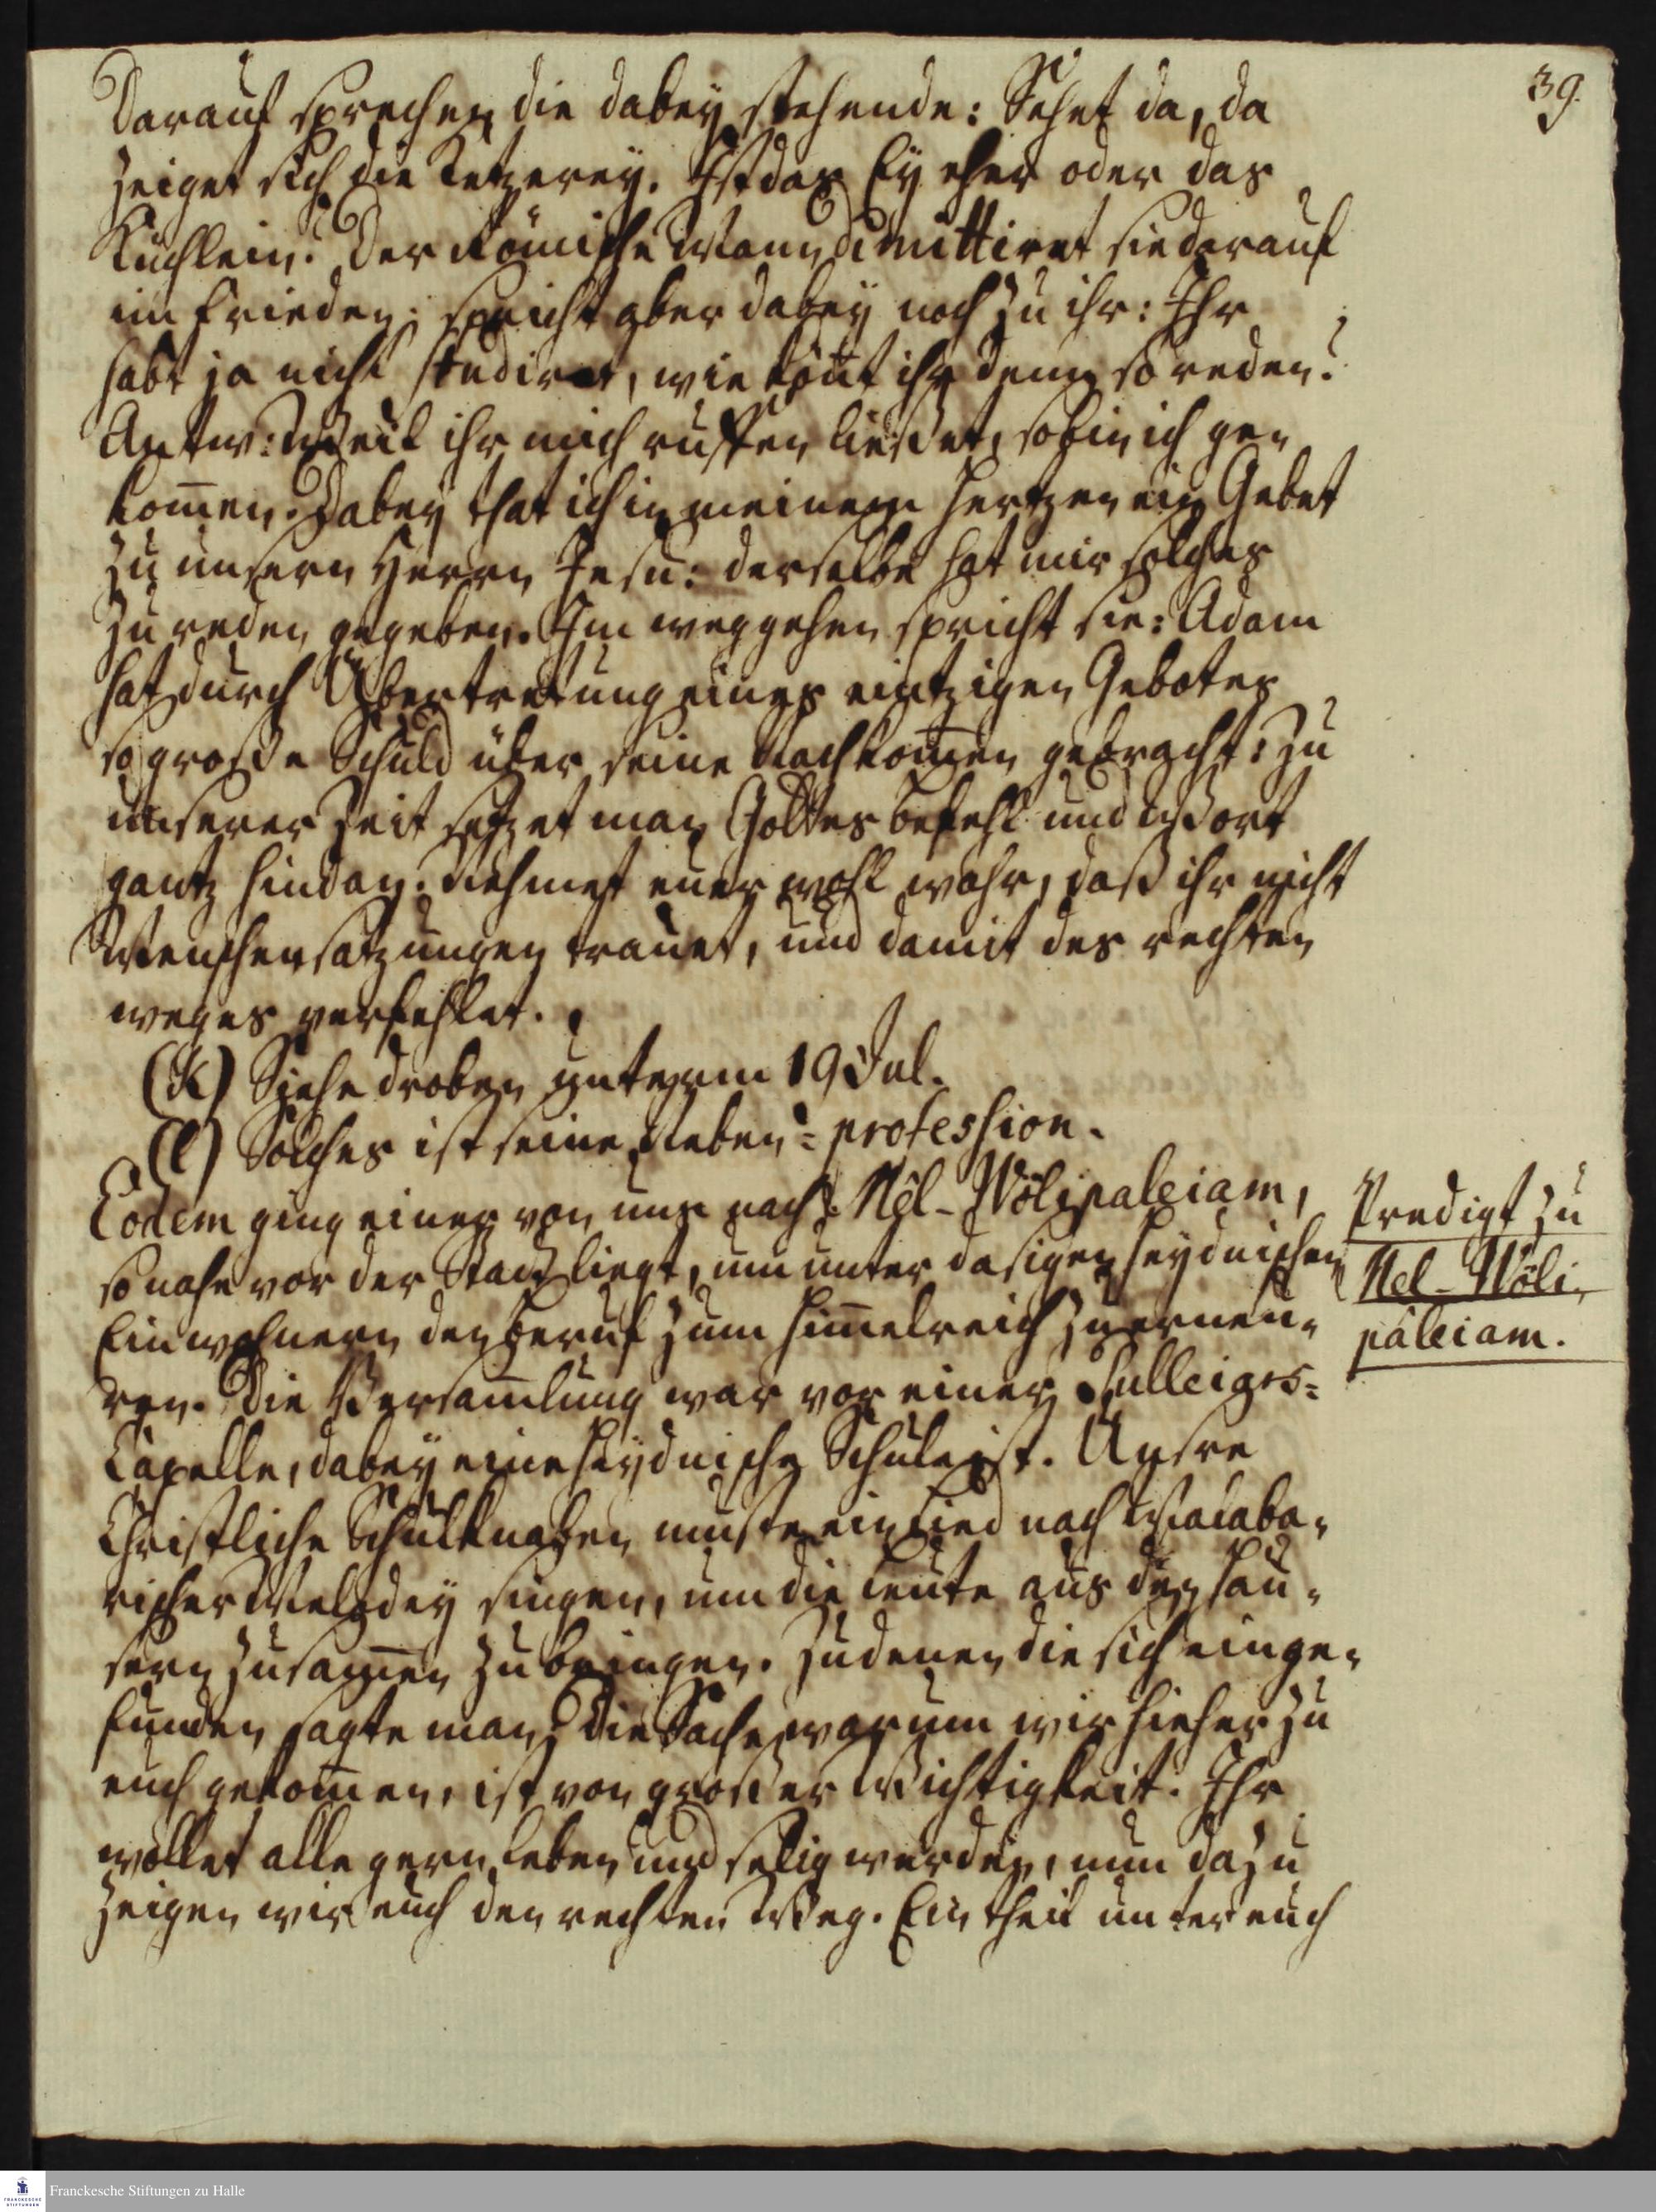 39.
Darauf sprechen die dabey stehende: Sehet da, da
zeiget sich die Ketzerey. Ist das Ey eher oder das
Küchlein? Der Römische Mann dimittiret sie darauf
im Frieden; spricht aber dabey noch zu ihr: Ihr
habt ja nicht studiret, wie könt ihr denn so reden?
Antw: Weil ihr mich ruffen ließet, so bin ich ge-
kom̄en. Dabey that ich in meinem Hertzen ein Gebet
zu unsern Herrn Jesu: derselbe hat mir solches
zu reden gegeben. Im weggehen spricht sie: Adam
hat durch Übertretung eines eintzigen Gebotes
so große Schuld über seine Nachkom̄en gebracht: Zu
unserer Zeit setzet man Gottes Befehl und Wort
gantz hindan. Nehmet euer wohl wahr, daß ihr nicht
Menschensatzungen trauet, und damit des rechten
weges verfehlet.
(K) Siehe droben unterm 19 Jul.
(l) Solches ist seine Neben-profession.
Eodem ging einer von uns nach Nêl-Wölipaleiam,
so nahe vor der Stadt liegt, um unter dasigen heydnischen
Einwohnern den Beruf zum Him̄elreich zu erneu-
ren. Die Versam̄lung war vor einer Pulleiars-
Capelle, dabey eine heydnische Schule ist. Unsre
Christliche Schulknaben muste ein Lied nach Malaba-
rischer Melodey singen, um die Leute aus den Häu-
sern zusam̄en zu bringen. Zu denen die sich einge-
funden sagte man: Die Sache, warum wir hieher zu
euch gekom̄en, ist von großer Wichtigkeit. Ihr
wollet alle gern leben und selig werden, nun dazu
zeigen wir euch den rechten Weg. Ein theil unter euch
Predigt zu
Nel-Wöli-
pâleiam.
Franckesche Stiftungen zu Halle
FRANCKESCHE
STIFTUNGEN